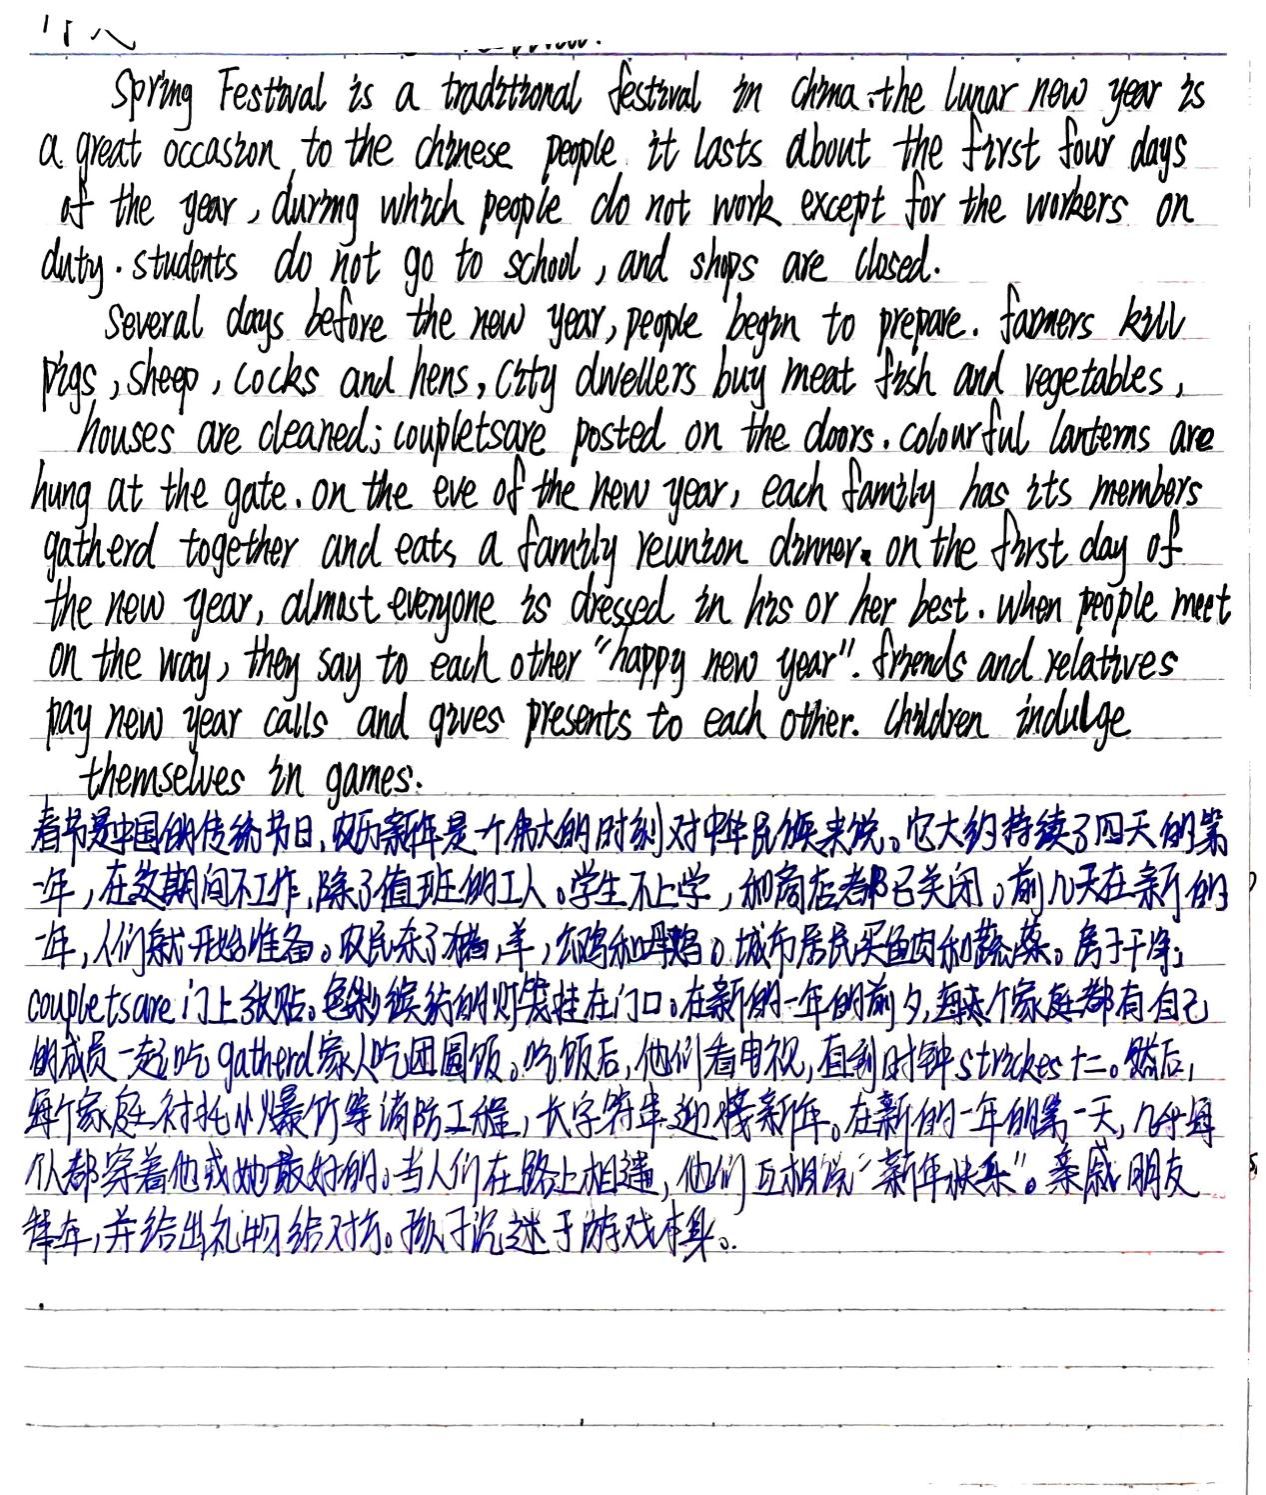 Spring Festival is a traditional festival in china.the lunar new year is
a great occasion to the chinese people it lasts about the first four days
of the year, during which people do not work except for the workers on
duty. students do not go to school, and shops are closed.
Several days before the new year, people begin to prepare. farmers kill
pigs, sheep, cocks and hens, city dwellers buy meat fish and vegetables,
houses are cleaned; coupletsare posted on the doors. colourful lanterns are
hung at the gate. on the eve of the new year, each family has its members
gatherd together and eats a family reunion dinner. on the first day of
the new year, almost everyone is dressed in his or her best. when people meet
on the way, they say to each other "happy new year". friends and relatives
pay new year calls and gives presents to each other. children indulge
themselves in games.
春节是中国的传统节日,农历新年是一个伟大的时刻对中华民族来说。它大约持续了四天的第
一年,在这期间不工作,除了值班的工人。学生不上学,和商店都已关闭。前几天在新的
一年,人们就开始准备。农民杀了猪,羊,公鸡和母鸡。城市居民买鱼肉和蔬菜。房子干净;
coupletsare门上张贴。色彩缤纷的灯笼挂在门口。在新的一年的前夕,每个家庭都有自己
的成员一起吃gatherd家人吃团圆饭。吃饭后,他们看电视,直到时钟strickes十二。然后,
每个家庭衬托小爆竹等消防工程,长字符串迎接新年。在新的一年的第一天,几乎每
个人都穿着他或她最好的。当人们在路上相遇,他们互相说"新年快乐"。亲戚朋友
拜年,并给出礼物给对方。孩子沉迷于游戏本身。